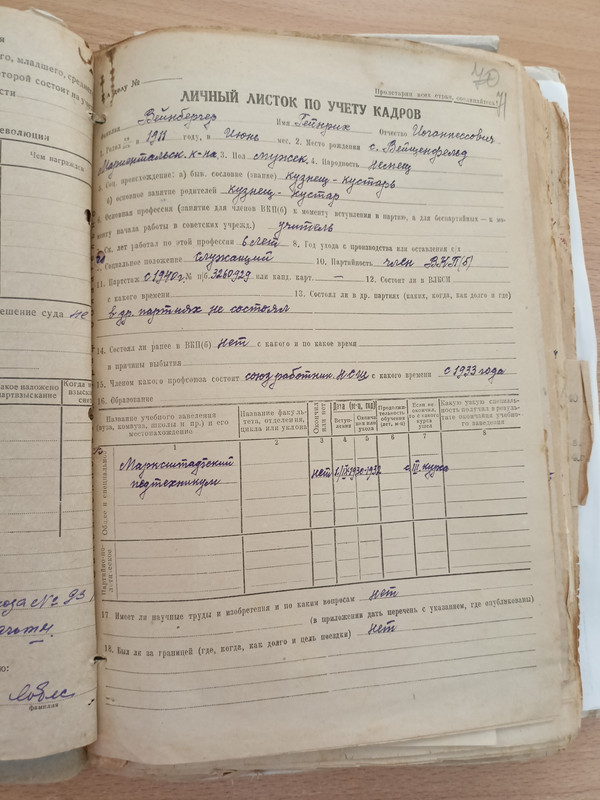 него, младшего, средн
которой состоит на уч
ности
еволюции
Чем награжден
решение суда не
какое наложено партвзыскание
Когда
взыска
сня
фамилия
42
71
К делу №
Пролетарии всех стран, соединяйтесь!
ЛИЧНЫЙ ЛИСТОК ПО УЧЕТУ КАДРОВ
Фамилия Вейнбергер Имя Гейнрих Отчество Иоганнессович
1. Родил ся в 1911 году, в Июнь мес. 2. Место рождения с. Вейценфельд
Мариентальск. к-на 3. Пол мужск. 4. Народность немец
5. Соц. происхождение: а) быв. сословие (звание) кузнец-кустарь
б) основное занятие родителей кузнец-кустар
6. Основная профессия (занятие для членов ВКП(б) к моменту вступления в партию, а для беспартийных — к мо-
менту начала работы в советских учрежд.) учитель
7. Ск. лет работал по этой профессии 8 лет 8. Год ухода с производства или оставления с/х
9. Социальное положение служащий 10. Партийность член ВКП(б)
11. Партстаж с 1940 г. № п/б. 3260929 или канд. карт — 12. Состоит ли в ВЛКСМ
с какого времени 13. Состоял ли в др. партиях (каких, когда, как долго и где)
в др. партиях не состоял
14. Состоял ли ранее в ВКП(б) нет с какого и по какое время
и причины выбытия
15. Членом какого профсоюза состоит союз работник. НСШ с какого времени с 1933 года
16. Образование
Название учебного заведения (вуза, комвуза, школы и пр.) и его местонахождение
Название факультета, отделения, цикла или уклона
Окончил или нет
Дата (м-ц, год)
Вступления
Окончания или ухода
Продолжительность обучения (лет, м-ц)
Если не окончил, то с какого курса ушел
Какую узкую специальность получил в результате окончания учебного заведения
1 2 3 4 5 6 7 8
Общее и специальн.
Марксштадтский нет 1930 1932 с III. курса
педтехникум
Партийно-политическое
17. Имеет ли научные труды и изобретения и по каким вопросам нет
(в приложении дать перечень с указанием, где опубликованы)
18. Был ли за границей (где, когда, как долго и цель поездки) нет